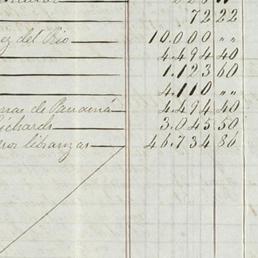 72 22
ez del Rio 10,000 „ „
4.494 40
1.123 60
4.110 „ „
nas de Panamá 4.494 40
Richards 3.045 50
por libranzas 46.734 86